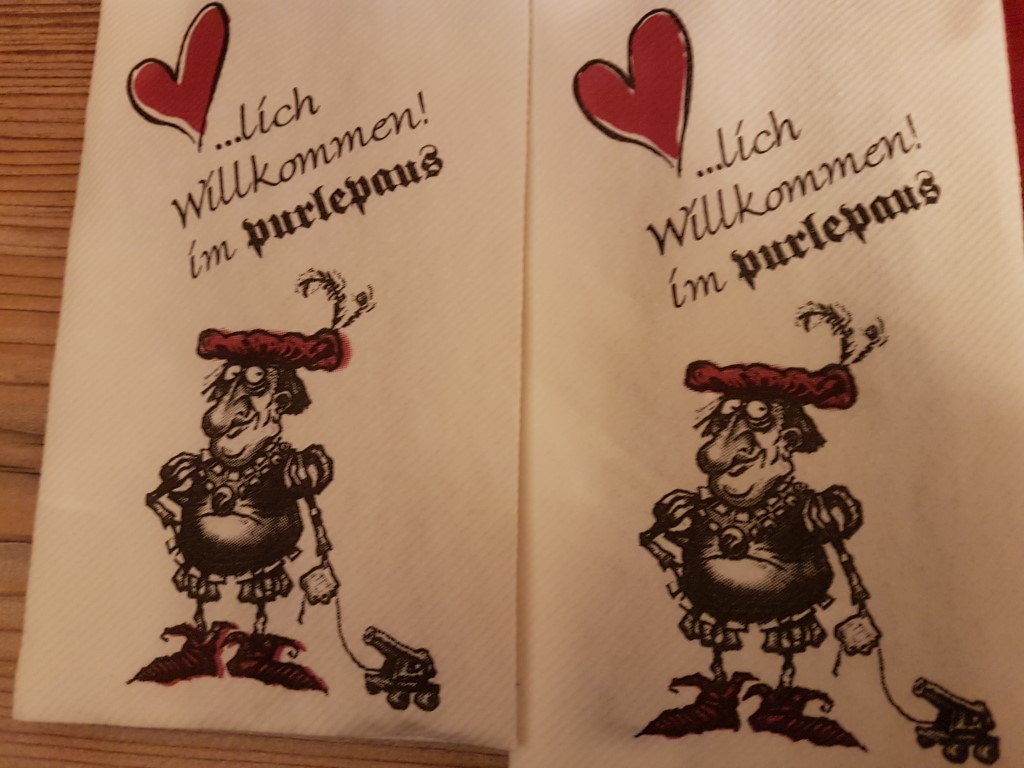 ...lich
Willkommen!
im purlepaus
...lich
Willkommen!
im purlepaus